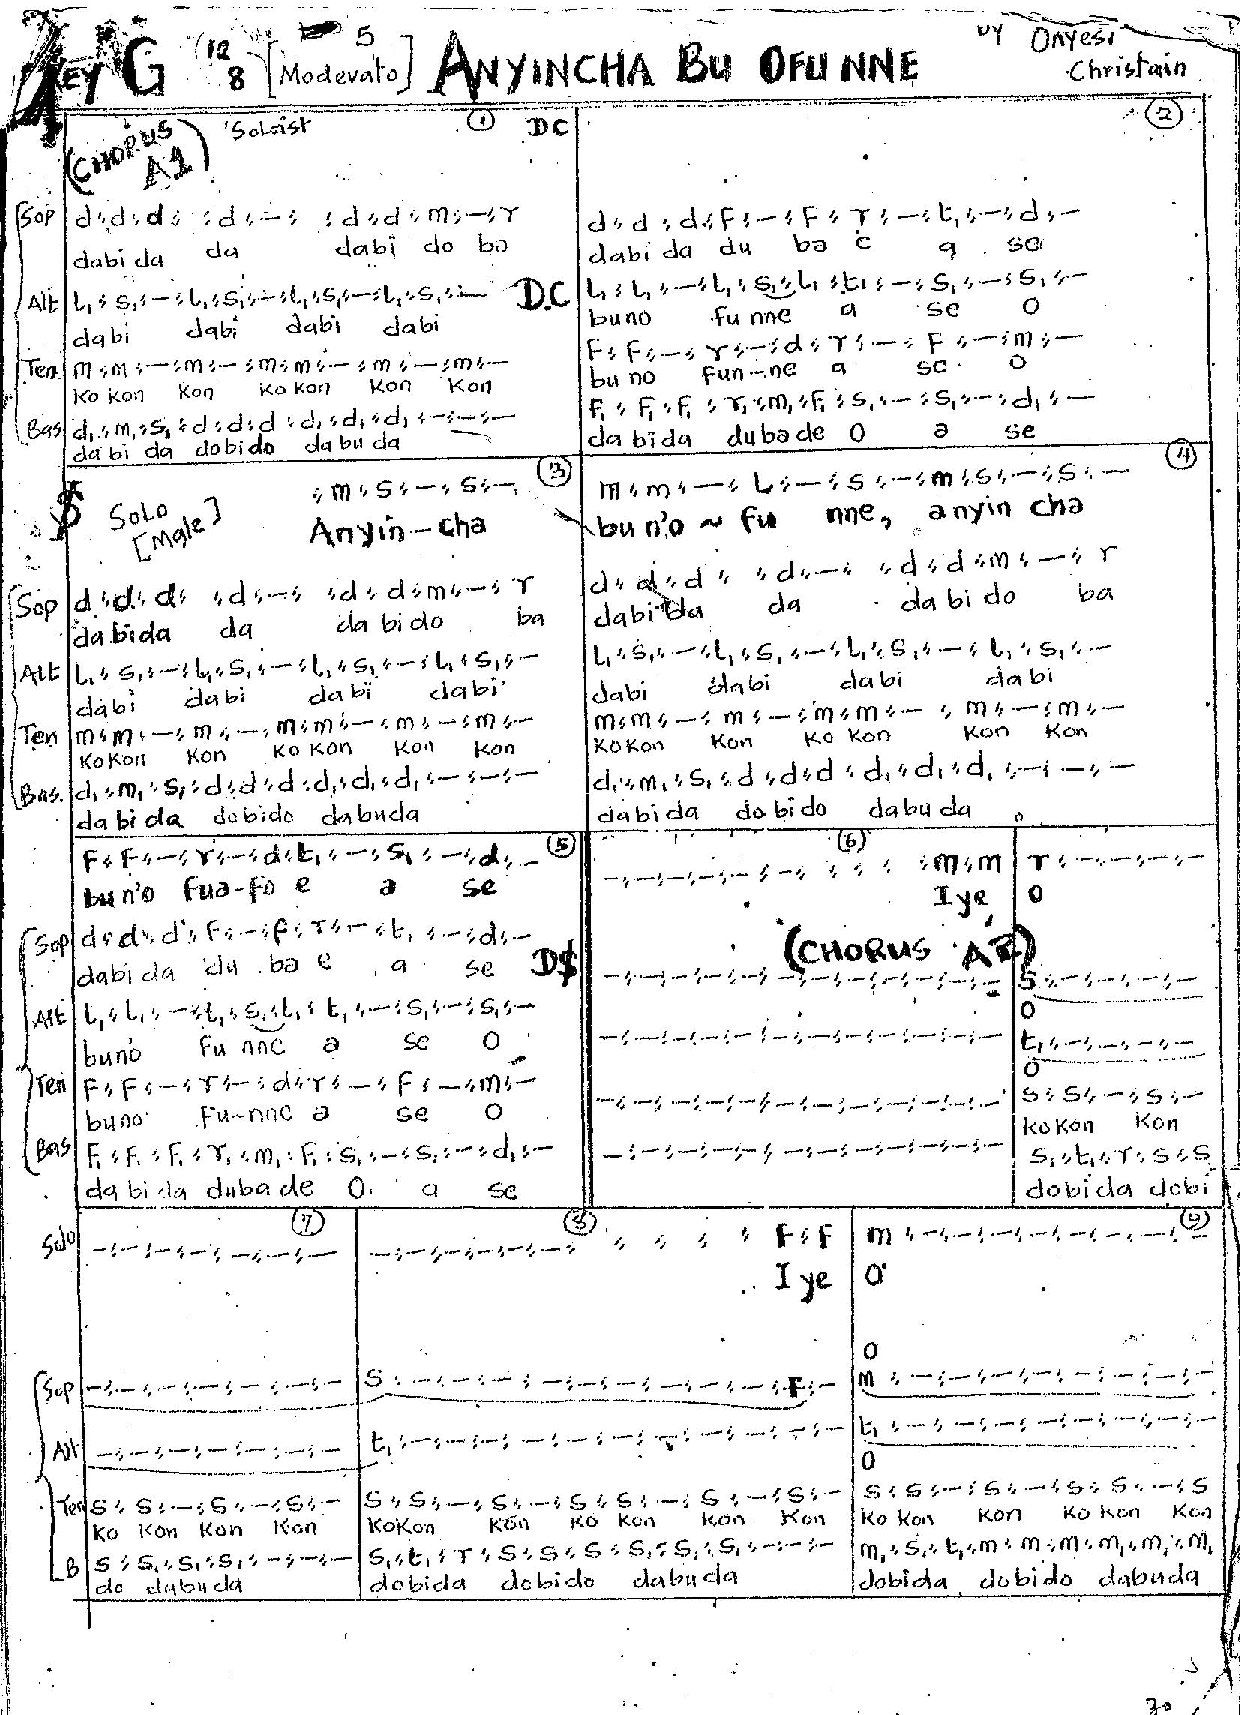 KEY G 12 8 [Moderato] 5 ANYINCHA BU OFU NNE BY Onyesi Christain
(CHORUS A1) Soloist ① DC ②
Sop d:d:d: :d:-: :d:d:m:-:r
dabi da da dabi do ba
d:d:d:F:-:F:r:-:t,:-:d:-
dabi da du ba e a se
Alt l,:s,:-:l,:s,:-:l,:s,:-:l,:s,:- D.C
dabi dabi dabi dabi
l,:l,:-:l,:s,:l,:t,:-:s,:-:s,:-
buno fu nne a se o
Ten m:m:-:m:-:m:m:-:m:-:m:-
Ko kon Kon Ko kon Kon Kon
F:F:-:r:-:d:r:-:F:-:m:-
bu no fun-ne a se o
Bas d,:m,:s,:d:d:d:d,:d,:d,:-:-:-
dabi da dobido dabuda
F,:F,:F,:r,:m,:F,:s,:-:s,:-:d,:-
dabida dubade O a se
Solo [Male] :m:s:-:s:- ③
Anyin-cha
m:m:-:L:-:s:-:m:s:-:s:- ④
bun'o ~ fu nne, anyin cha
Sop d:d:d: :d:-: :d:d:m:-:r
dabida da dabido ba
d:d:d: :d:-: :d:d:m:-:r
dabi da da dabido ba
Alt l,:s,:-:l,:s,:-:l,:s,:-:l,:s,:-
dabi dabi dabi dabi
l,:s,:-:l,:s,:-:l,:s,:-:l,:s,:-
dabi dabi dabi dabi
Ten m:m:-:m:-:m:m:-:m:-:m:-
KoKon Kon Ko Kon Kon Kon
m:m:-:m:-:m:m:-:m:-:m:-
KoKon Kon Ko Kon Kon Kon
Bas. d,:m,:s,:d:d:d:d,:d,:d,:-:-:-
dabida dobido dabuda
d,:m,:s,:d:d:d:d,:d,:d,:-:-:-
dabida dobido dabuda
F:F:-:r:-:d:t,:-:s,:-:d:- ⑤
bun'o fua-fo e a se
-:-:-:-:-:-: : : :m:m ⑥
Iye
r:-:-:-:-:-
O
Sop d:d:d:F:-:F:r:-:t,:-:d:-
dabida du ba e a se D$
(CHORUS A2)
-:-:-:-:-:-:-:-:-:-:-:-
s:-:-:-:-:-
O
Alt l,:l,:-:l,:s,:l,:t,:-:s,:-:s,:-
buno fu nne a se O
-:-:-:-:-:-:-:-:-:-:-:-
t,:-:-:-:-:-
O
Ten F:F:-:r:-:d:r:-:F:-:m:-
buno fu-nne a se O
-:-:-:-:-:-:-:-:-:-:-:-
s:s:-:s:-
kokon Kon
Bas F,:F,:F,:r,:m,:F,:s,:-:s,:-:d,:-
dabida dubade O. a se
-:-:-:-:-:-:-:-:-:-:-:-
s,:t,:r:s:s
dobida dobi
Solo -:-:-:-:-:-:- ⑦
-:-:-:-:-:-:-: : : :F:F ⑧
I ye
m:-:-:-:-:-:-:-:- ⑨
O
O
Sop -:-:-:-:-:-:-
s:-:-:-:-:-:-:-:-:-:F:-
m:-:-:-:-:-:-:-:-
Alt -:-:-:-:-:-:-
t,:-:-:-:-:-:-:-:-:-:-:-
t,:-:-:-:-:-:-:-:-
O
Ten s:s:-:s:-:s:-
Ko Kon Kon Kon
s:s:-:s:-:s:s:-:s:-:s:-
KoKon Kon Ko Kon Kon Kon
s:s:-:s:-:s:s:-:s
Ko Kon Kon Ko Kon Kon
B s:s,:s,:s,:-:-:-
do dabuda
s,:t,:r:s:s:s:s,:s,:s,:-:-:-
dobida dobido dabuda
m,:s,:t,:m:m:m:m,:m,:m,
dobida dobido dabuda
30